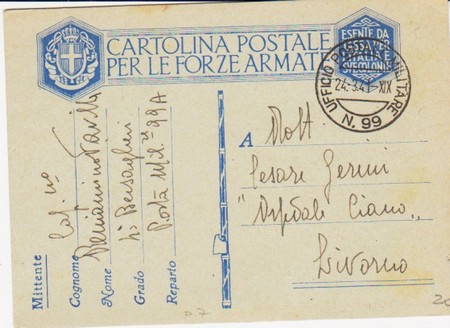 CARTOLINA POSTALE
PER LE FORZE ARMATE
ESENTE DA
TASSA PER
ITALIA E
COLONIE
UFFICIO POSTALE MILITARE
24.3.41-XIX
N. 99
A
Dott
Cesare Gerini
"Ospedale Ciano"
Livorno
Mittente
Cognome
Nome
Grado
Reparto
Beniamino
Bersaglieri
Posta Mil. 99A